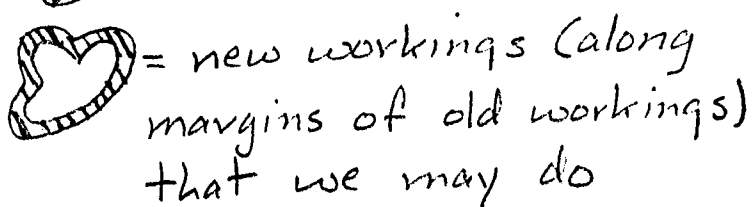 = new workings (along
margins of old workings)
that we may do